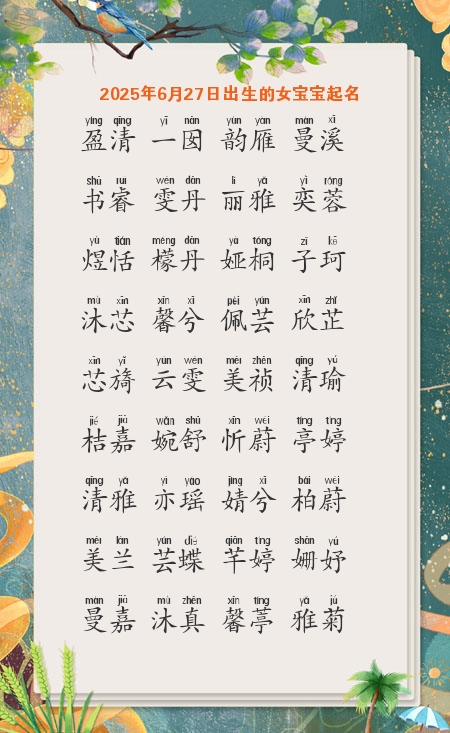 2025年6月27日出生的女宝宝起名
yíng qīng yī nān yùn yàn màn xī
盈清 一囡 韵雁 曼溪
shū ruì wén dān lì yǎ yì róng
书睿 雯丹 丽雅 奕蓉
yù tián méng dān yà tóng zǐ kē
煜恬 檬丹 娅桐 子珂
mù xīn xīn xī pèi yún xīn zhǐ
沐芯 馨兮 佩芸 欣芷
xīn yǐ yún wén měi zhēn qīng yú
芯旖 云雯 美祯 清瑜
jié jiā wǎn shū xīn wèi tíng tíng
桔嘉 婉舒 忻蔚 亭婷
qīng yǎ yì yáo jìng xī bǎi wèi
清雅 亦瑶 婧兮 柏蔚
měi lán yún dié qiān tíng shān yú
美兰 芸蝶 芊婷 姗妤
màn jiā mù zhēn xīn tíng yǎ jú
曼嘉 沐真 馨葶 雅菊